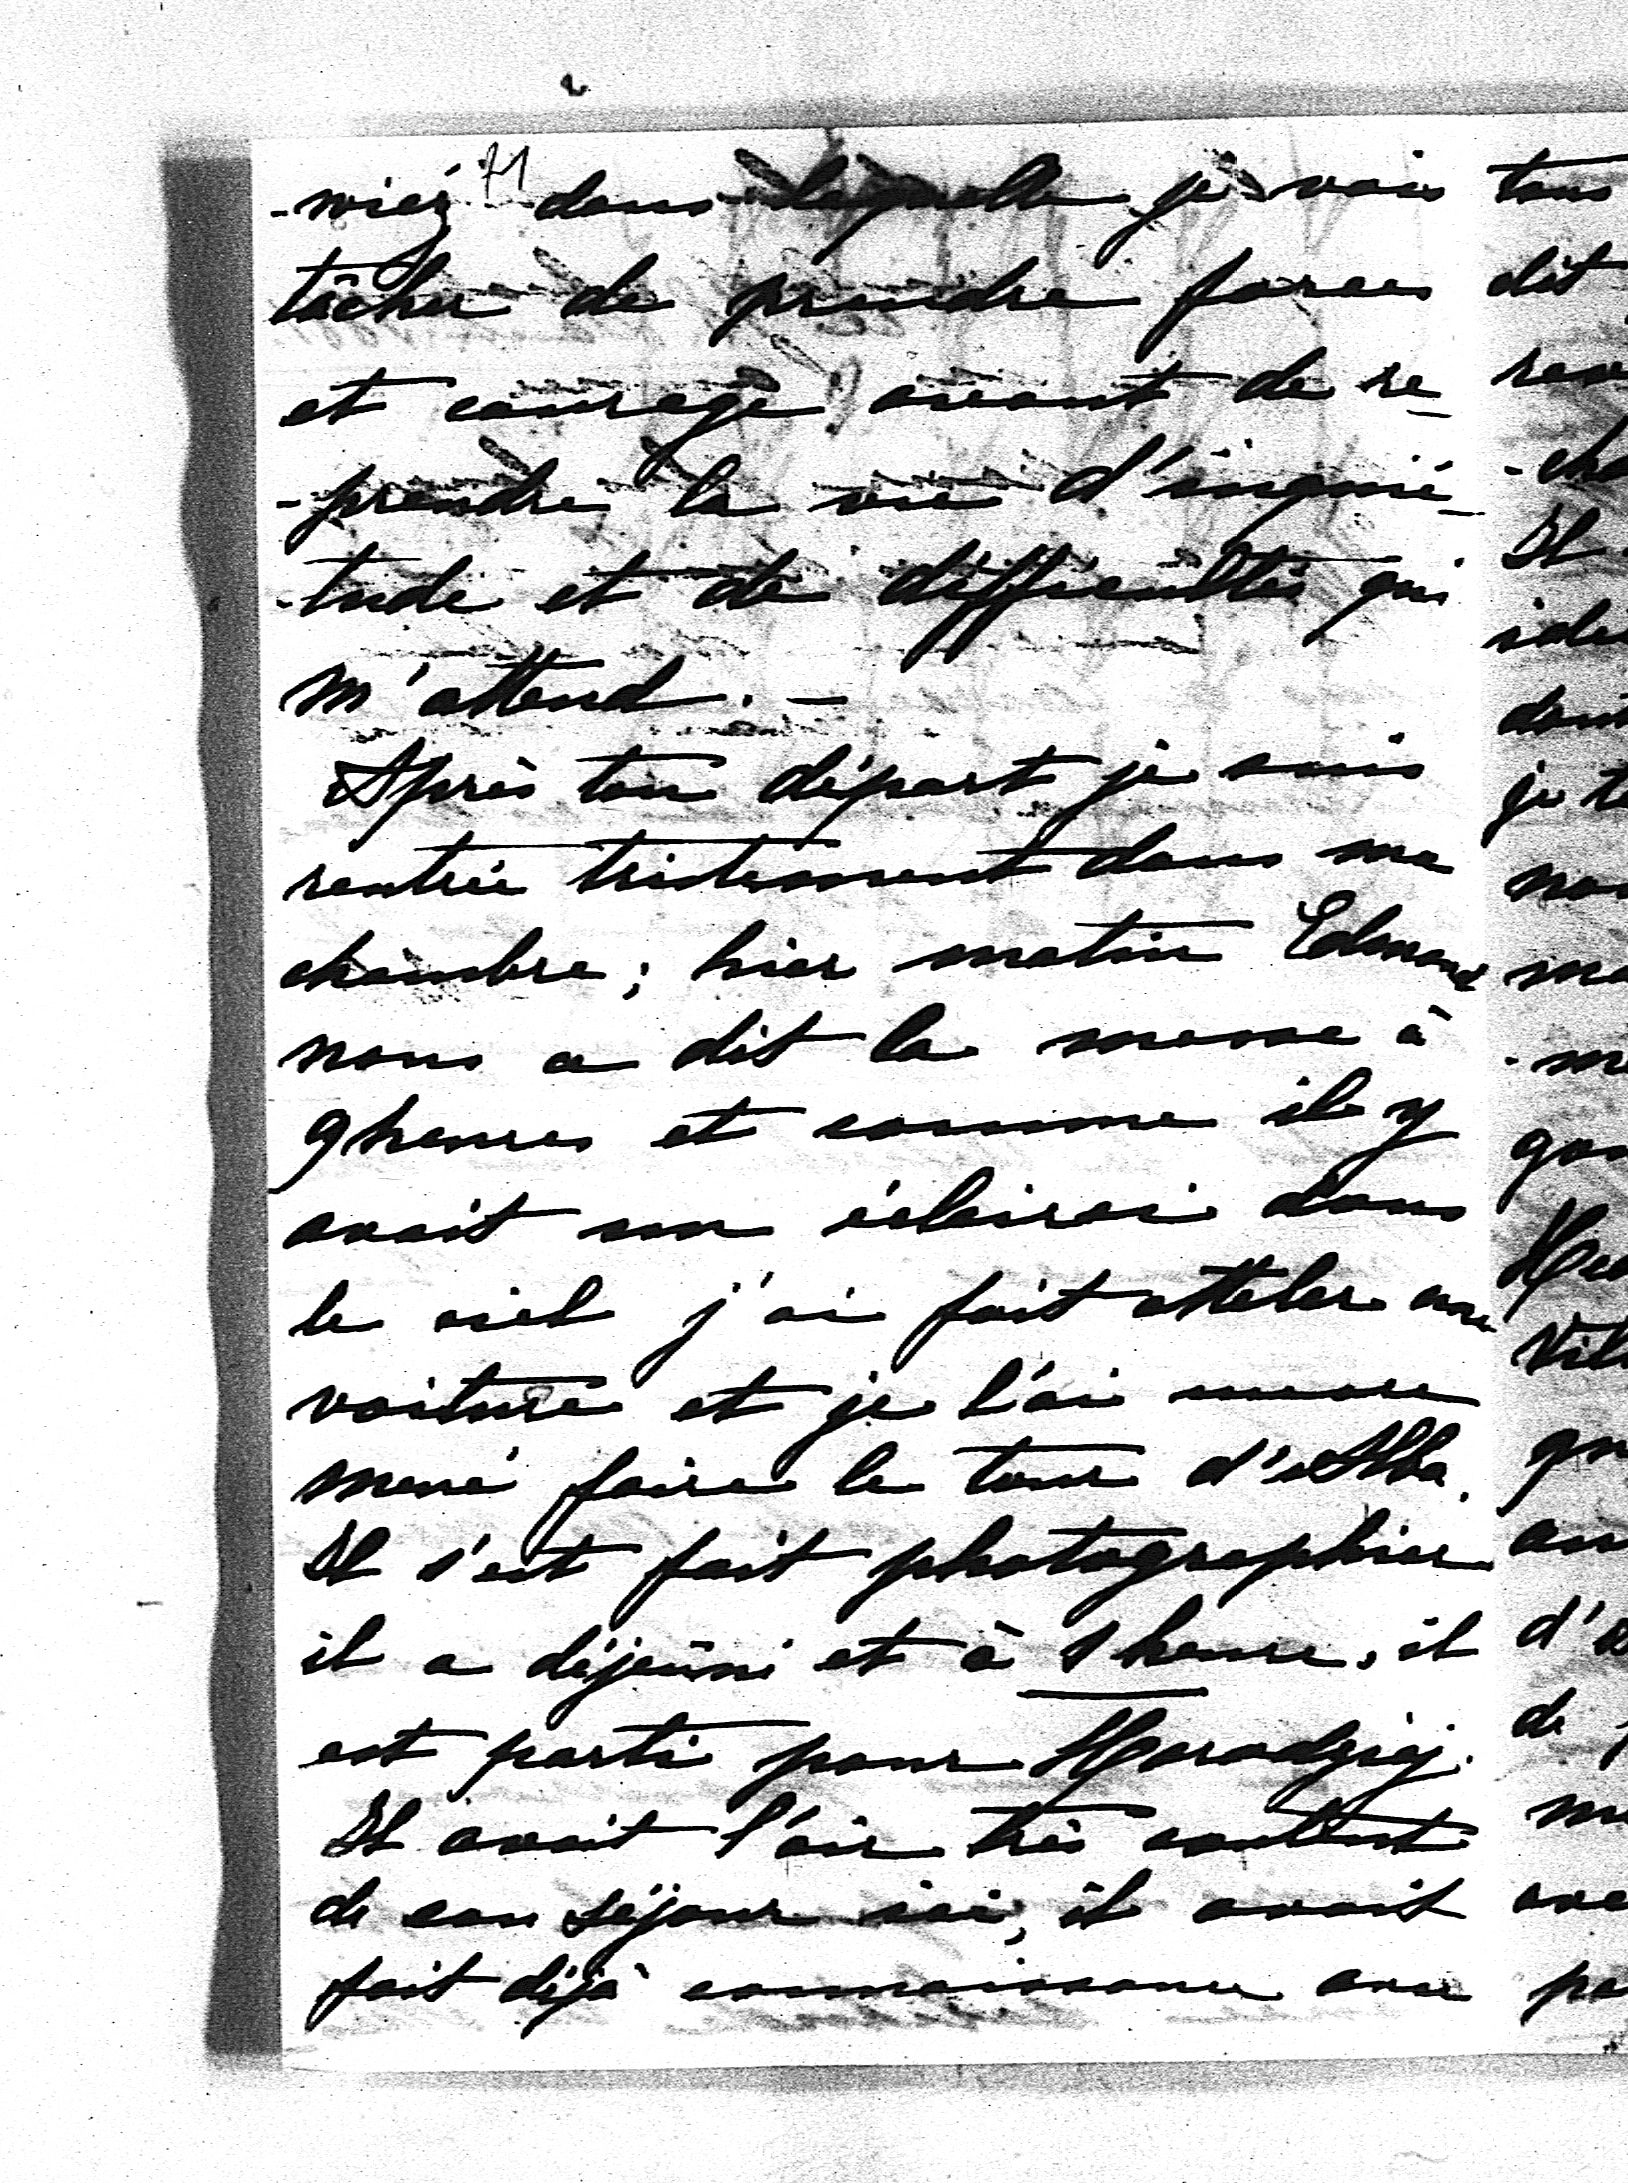 71
-wiez dans laquelle je vais
tâcher de prendre forces
et courage avant de re-
-prendre la vie d'inquié-
-tude et de difficultés qui
m'attend. -
Après ton départ je suis
rentrée tristement dans ma
chambre; hier matin Edmond
nous a dit la messe à
9 heures et comme il y
avait un éclairci dans
le ciel j'ai fait atteler une
voiture et je l'ai encore
mené faire le tour d'Alba.
Il s'est fait photographier
il a déjeûné et à 1 heure, il
est parti pour Horodziej.
Il avait l'air très content
de son séjour ici, il avait
fait déjà connaissance avec
tous
dit
-cha
Il
dont
je te
d'
de